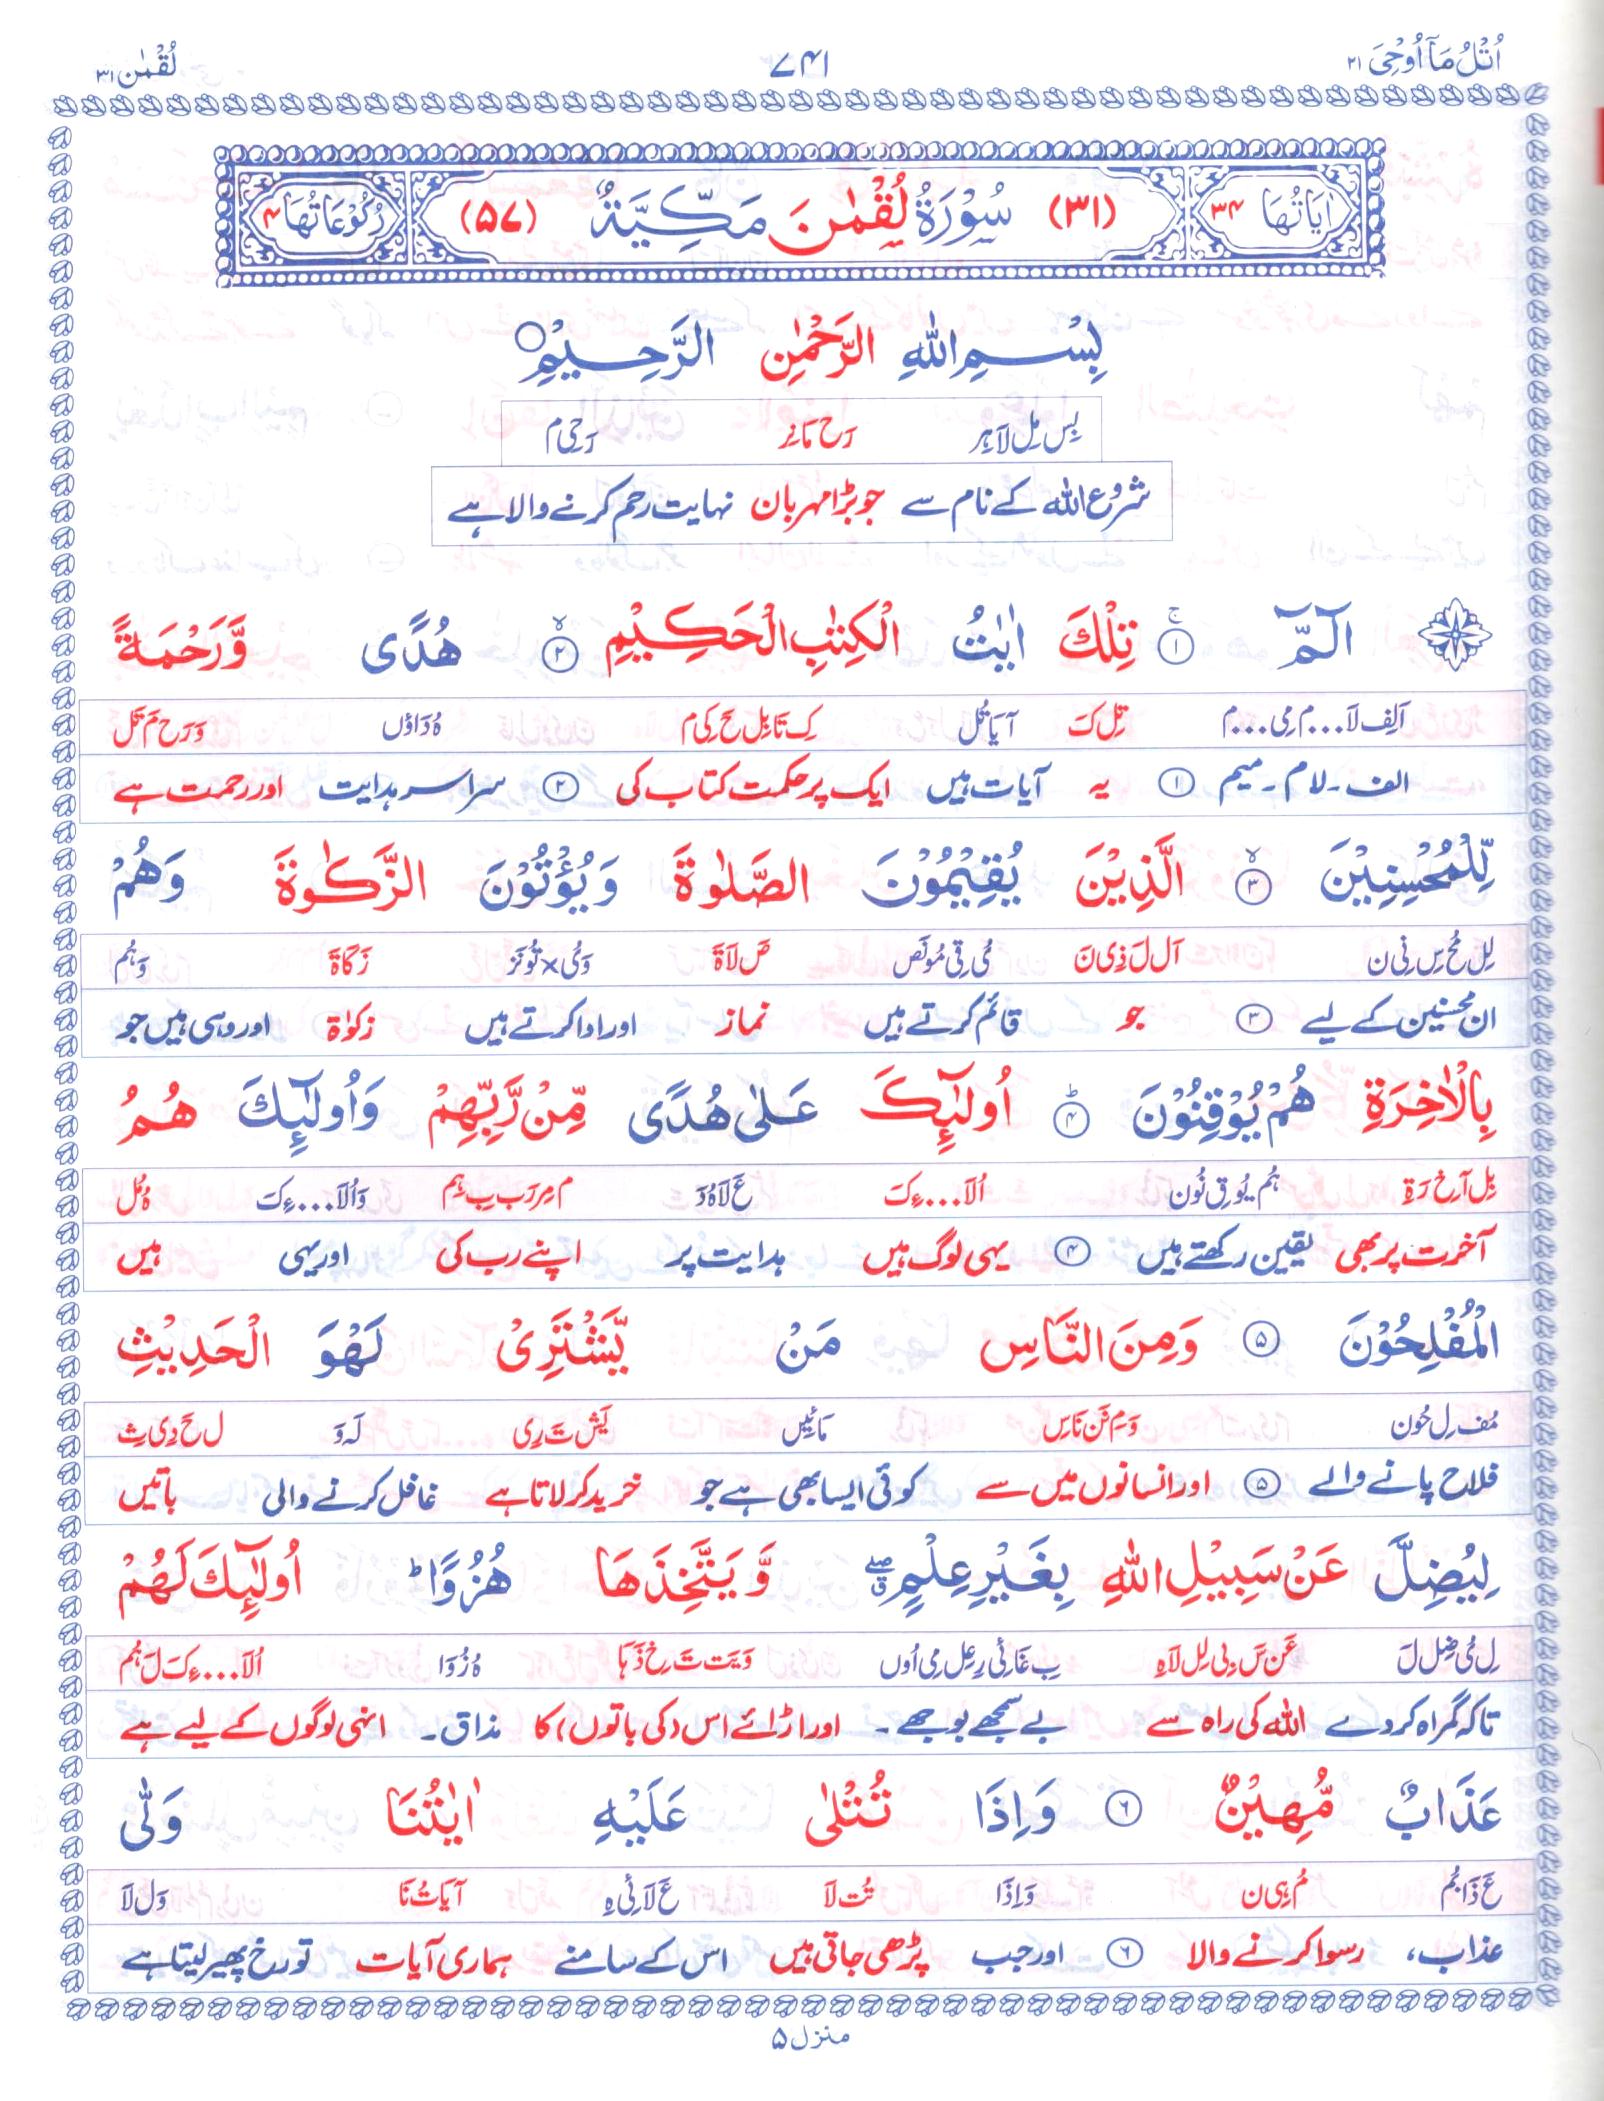 اُتْلُ مَاۤ اُوْحِیَ ۲۱ ۷۴۱ لُقْمٰن ۳۱
اٰیَاتُهَا ۳۴ (۳۱) سُوْرَةُ لُقْمٰنَ مَكِّیَّةٌ (۵۷) رُكُوْعَاتُهَا ۴
بِسْمِ اللّٰهِ الرَّحْمٰنِ الرَّحِیْمِ
بِس مِل لَاهِر رَح مَانِر رَحِی م
شروع اللہ کے نام سے جو بڑا مہربان نہایت رحم کرنے والا ہے
الٓمّٓ ۚ﴿۱﴾ تِلْكَ اٰیٰتُ الْكِتٰبِ الْحَكِیْمِ ۙ﴿۲﴾ هُدًی وَّرَحْمَةً
اَلِف لَا...م مِی...م تِل كَ آیَاتُل كِتَابِل حَ كِی م هُدَاوْں وَرَح مَ تَل
الف۔ لام۔ میم ﴿۱﴾ یہ آیات ہیں ایک پر حکمت کتاب کی ﴿۲﴾ سراسر ہدایت اور رحمت ہے
لِّلْمُحْسِنِیْنَ ۙ﴿۳﴾ الَّذِیْنَ یُقِیْمُوْنَ الصَّلٰوةَ وَیُؤْتُوْنَ الزَّكٰوةَ وَهُمْ
لِل مُح سِ نِی ن اَل لَ ذِی نَ یُ قِی مُونَص صَ لَاةَ وَیُ×تُونَز زَكَاةَ وَہُم
ان محسنین کے لیے ﴿۳﴾ جو قائم کرتے ہیں نماز اور ادا کرتے ہیں زکوٰۃ اور وہی ہیں جو
بِالْاٰخِرَةِ هُمْ یُوْقِنُوْنَ ؕ﴿۴﴾ اُولٰٓئِكَ عَلٰی هُدًی مِّنْ رَّبِّهِمْ وَاُولٰٓئِكَ هُمُ
بِل آخِ رَةِ ہُم یُو قِ نُون اُلَا...ءِكَ عَ لَاهُدَ م مِر رَب بِ هِم وَاُلَا...ءِكَ هُمُل
آخرت پر بھی یقین رکھتے ہیں ﴿۴﴾ یہی لوگ ہیں ہدایت پر اپنے رب کی اور یہی ہیں
الْمُفْلِحُوْنَ ﴿۵﴾ وَمِنَ النَّاسِ مَنْ یَّشْتَرِیْ لَهْوَ الْحَدِیْثِ
مُف لِ حُون وَمِ نَن نَاسِ مَائِیں یَش تَ رِی لَہ وَ ل حَ دِی ثِ
فلاح پانے والے ﴿۵﴾ اور انسانوں میں سے کوئی ایسا بھی ہے جو خرید کر لاتا ہے غافل کرنے والی باتیں
لِیُضِلَّ عَنْ سَبِیْلِ اللّٰهِ بِغَیْرِ عِلْمٍ ۖۗ وَّیَتَّخِذَهَا هُزُوًا ؕ اُولٰٓئِكَ لَهُمْ
لِ یُ ضِل لَ عَن سَ بِی لِل لَاہِ بِ غَائِی رِ عِل مِی اُوں وَیَت تَ خِ ذَہَا هُ زُوَا اُلَا...ءِكَ لَ ہُم
تاکہ گمراہ کردے اللہ کی راہ سے بے سمجھے بوجھے۔ اور اڑائے اس (کی باتوں) کا مذاق۔ انہی لوگوں کے لیے ہے
عَذَابٌ مُّهِیْنٌ ﴿۶﴾ وَاِذَا تُتْلٰی عَلَیْهِ اٰیٰتُنَا وَلّٰی
عَ ذَابُم مُ ہِی ن وَاِذَا تُت لَا عَ لَائِی ہِ آیَاتُ نَا وَل لَا
عذاب، رسوا کرنے والا ﴿۶﴾ اور جب پڑھی جاتی ہیں اس کے سامنے ہماری آیات تو رخ پھیر لیتا ہے
منزل ۵